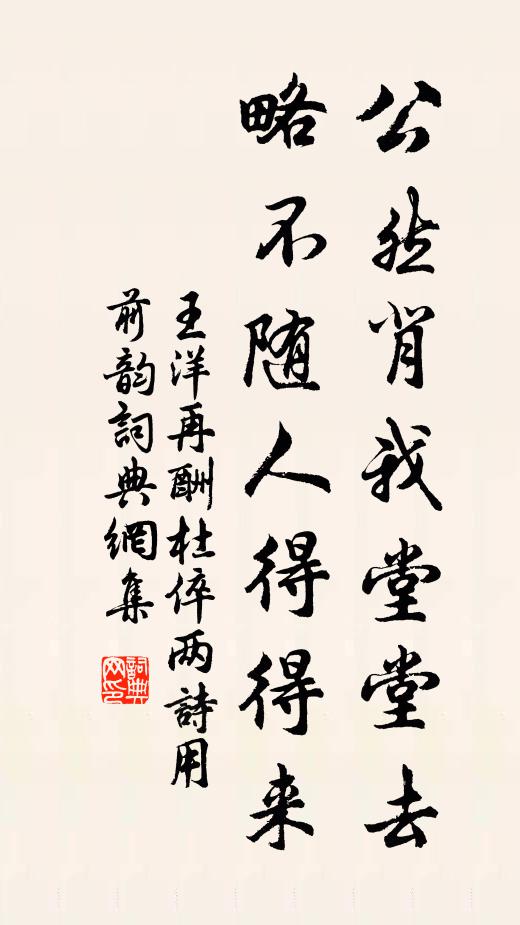 公然背我堂堂去
略不随人得得来
王洋再酬杜倅两詩用
前韵詞典網集
詞典网印